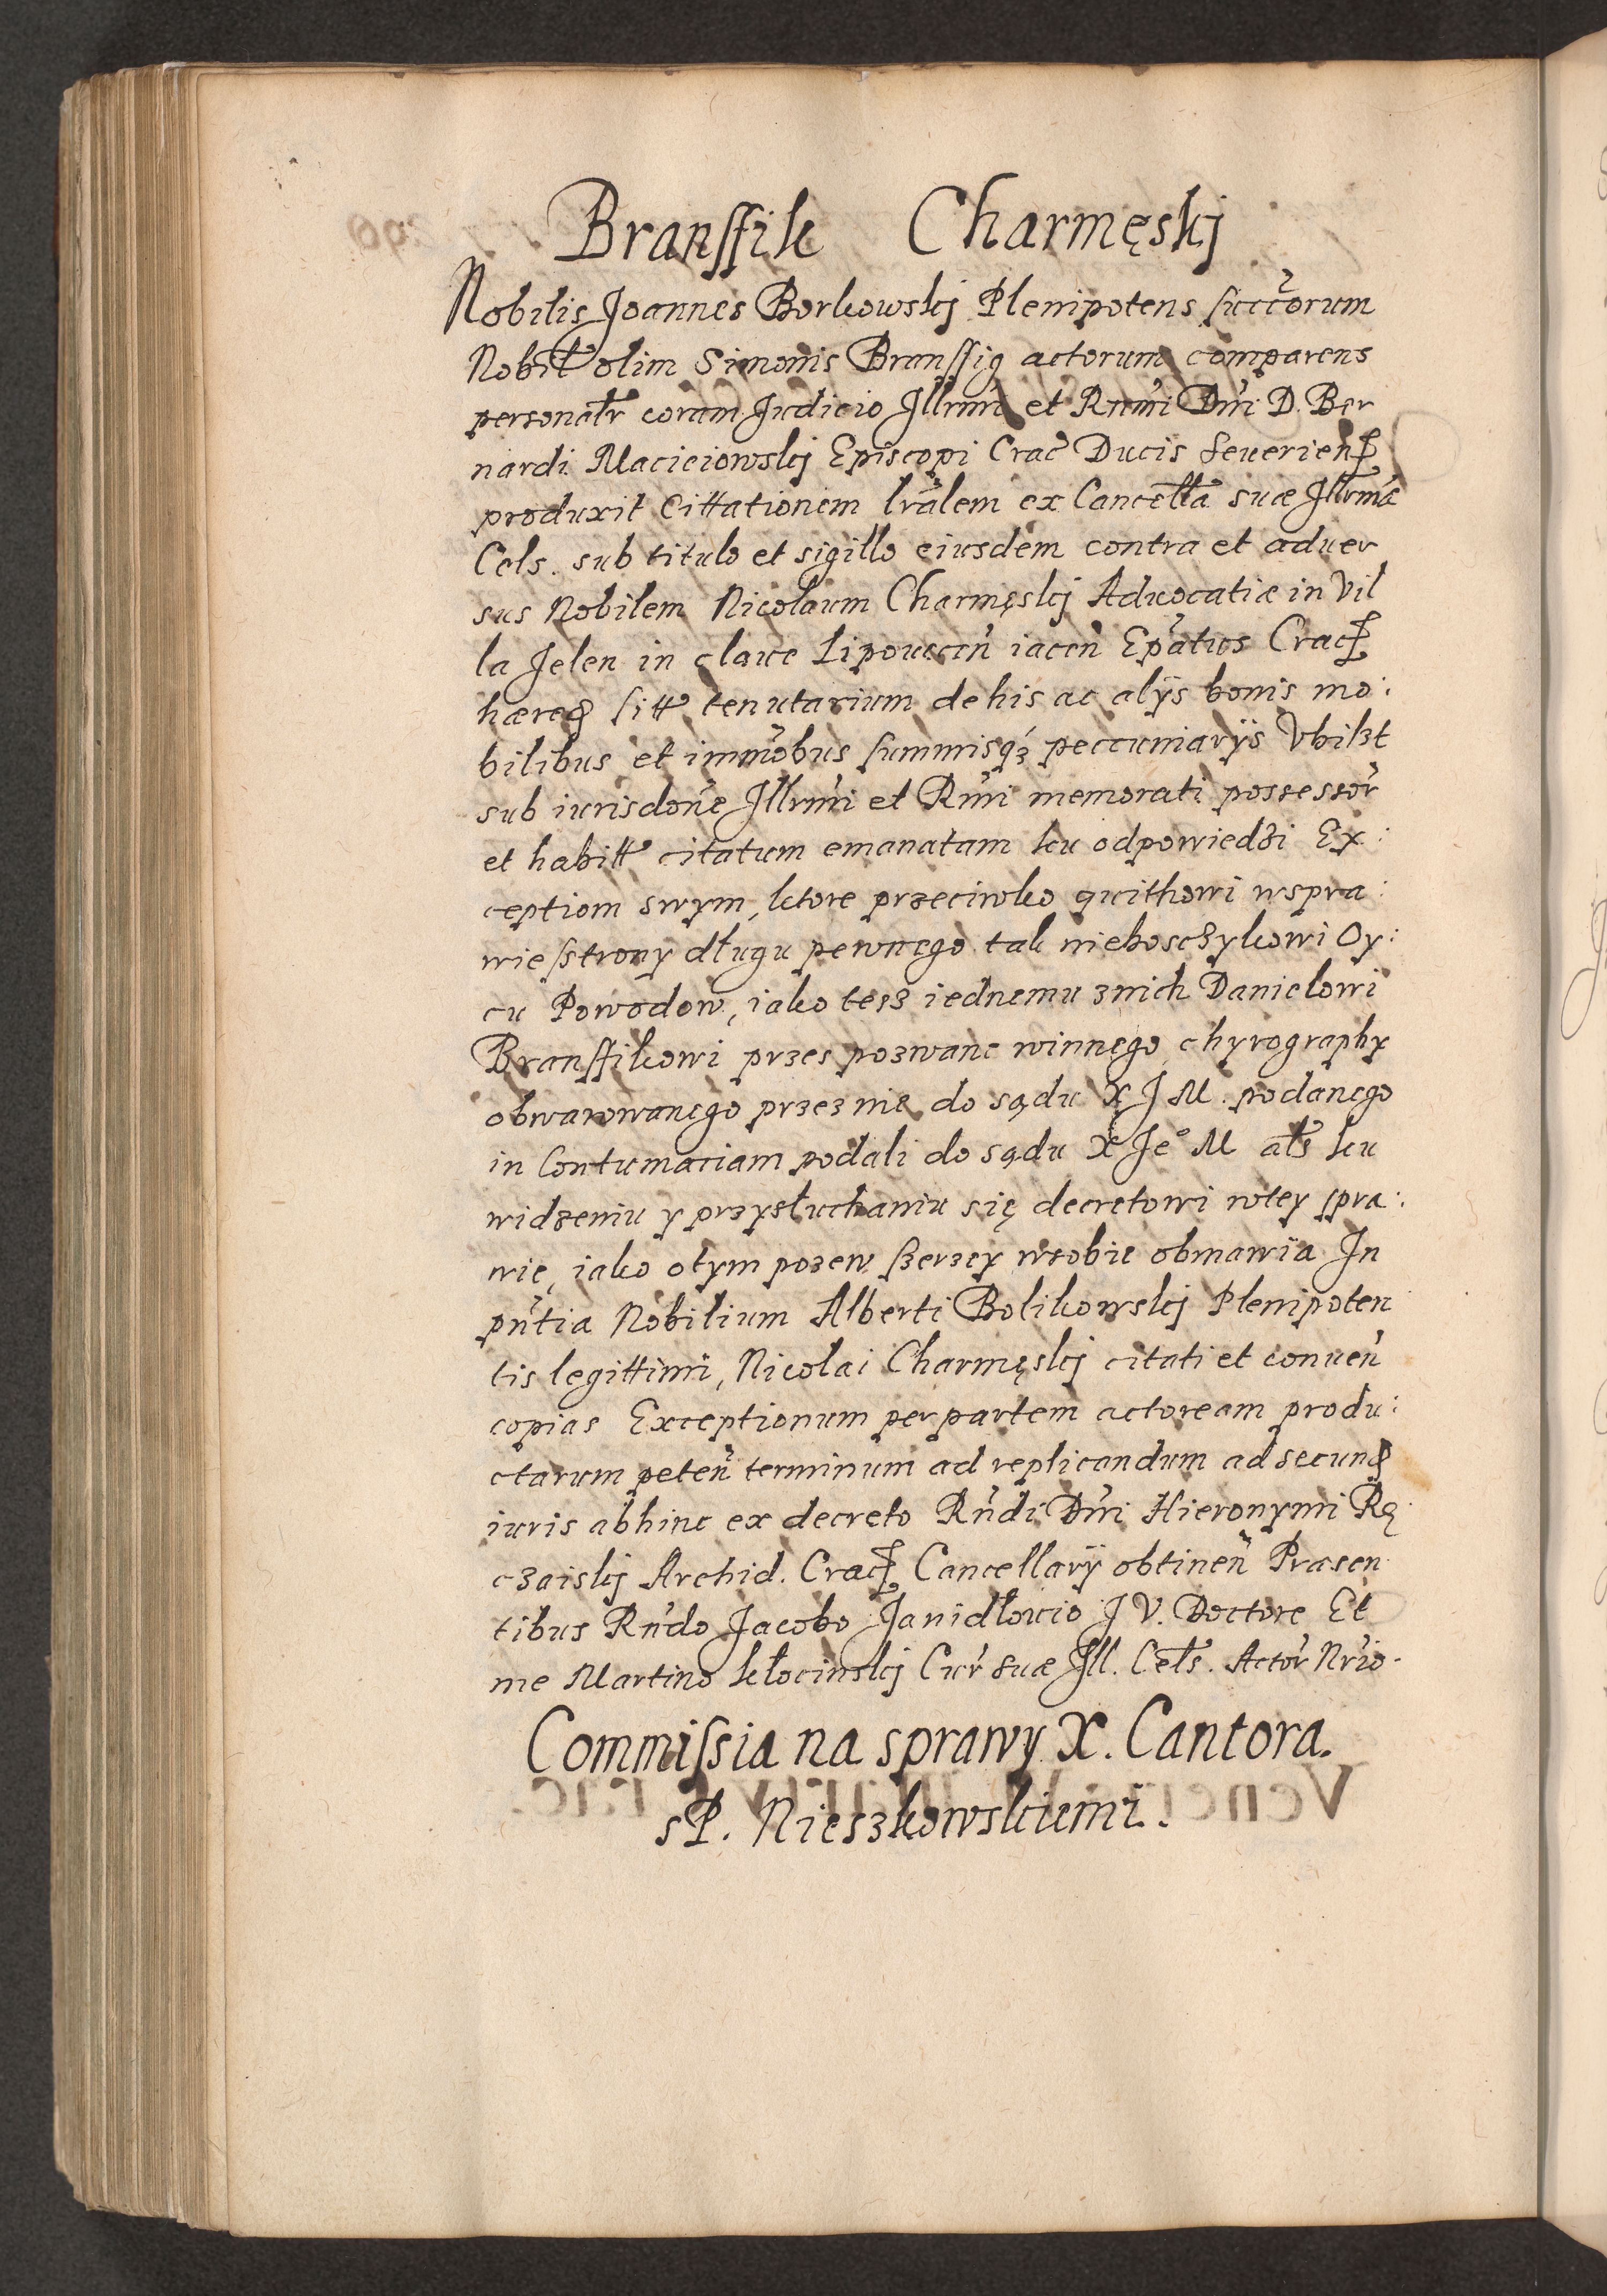 Branſſik Charmęskj
Nobilis Joannes Borkowskj Plenipotens ſuccorum
Nobil olim Simonis Branſſig actorum comparens
personalr coram Judicio Illrmi et Rnmi Dni D. Ber
nardi Macieiowskj Episcopi Crac Ducis Seuerien
produxit Cittationem lralem ex Cancella suæ Illrmæ
Cels. sub titulo et sigillo eiusdem contra et aduer
sus Nobilem Nicolaum Charmęskj Aduocatiæ in Vil
la Jelen in claue Lipouecen iacen Epatus Crac
hæred ſitt tenutarium de his ac alijs bonis mo:
bilibus et immobus ſummisqȝ peccuniarijs Vbilȝt
sub iurisdone Illrmi et Rmi memorati possessor
et habitt citatum emanatam ku odpowiedźi Ex:
ceptiom swym, ktore przeciwko quithowi wspra:
wie ſstrony długu pewnego tak nieboszczykowi Oy:
cu Powodow, iako tesz iednemu znich Danielowi
Branſſikowi przes pozwane winnego chyrography
obwarowanego przez nie do sądu X J M. podanego
in Contumaciam podali do sądu X Je° M als ku
widzeniu y przysłuchaniu się decretowi wtey spra:
wie, iako otym pozew ſzerzey wsobie obmawia In
pntia Nobilium Alberti Bolikowskj Plenipoten
tis legittimi, Nicolai Charmęskj citati et conuen
copias Exceptionum per partem actoream produ:
ctarum peten terminum ad replicandum ad secund
iuris abhinc ex decreto Rndi Dni Hieronymi Rę
czaiskj Archid. Crac Cancellarij obtinen Præsen
tibus Rndo Jacobo Janidłouio J V. Doctore Et
me Martino Kłocinskj Cur suæ Ill. Cels. Actor Nrio.
Commiſsia na sprawy X. Cantora.
sP. Nieszkowskiemi.